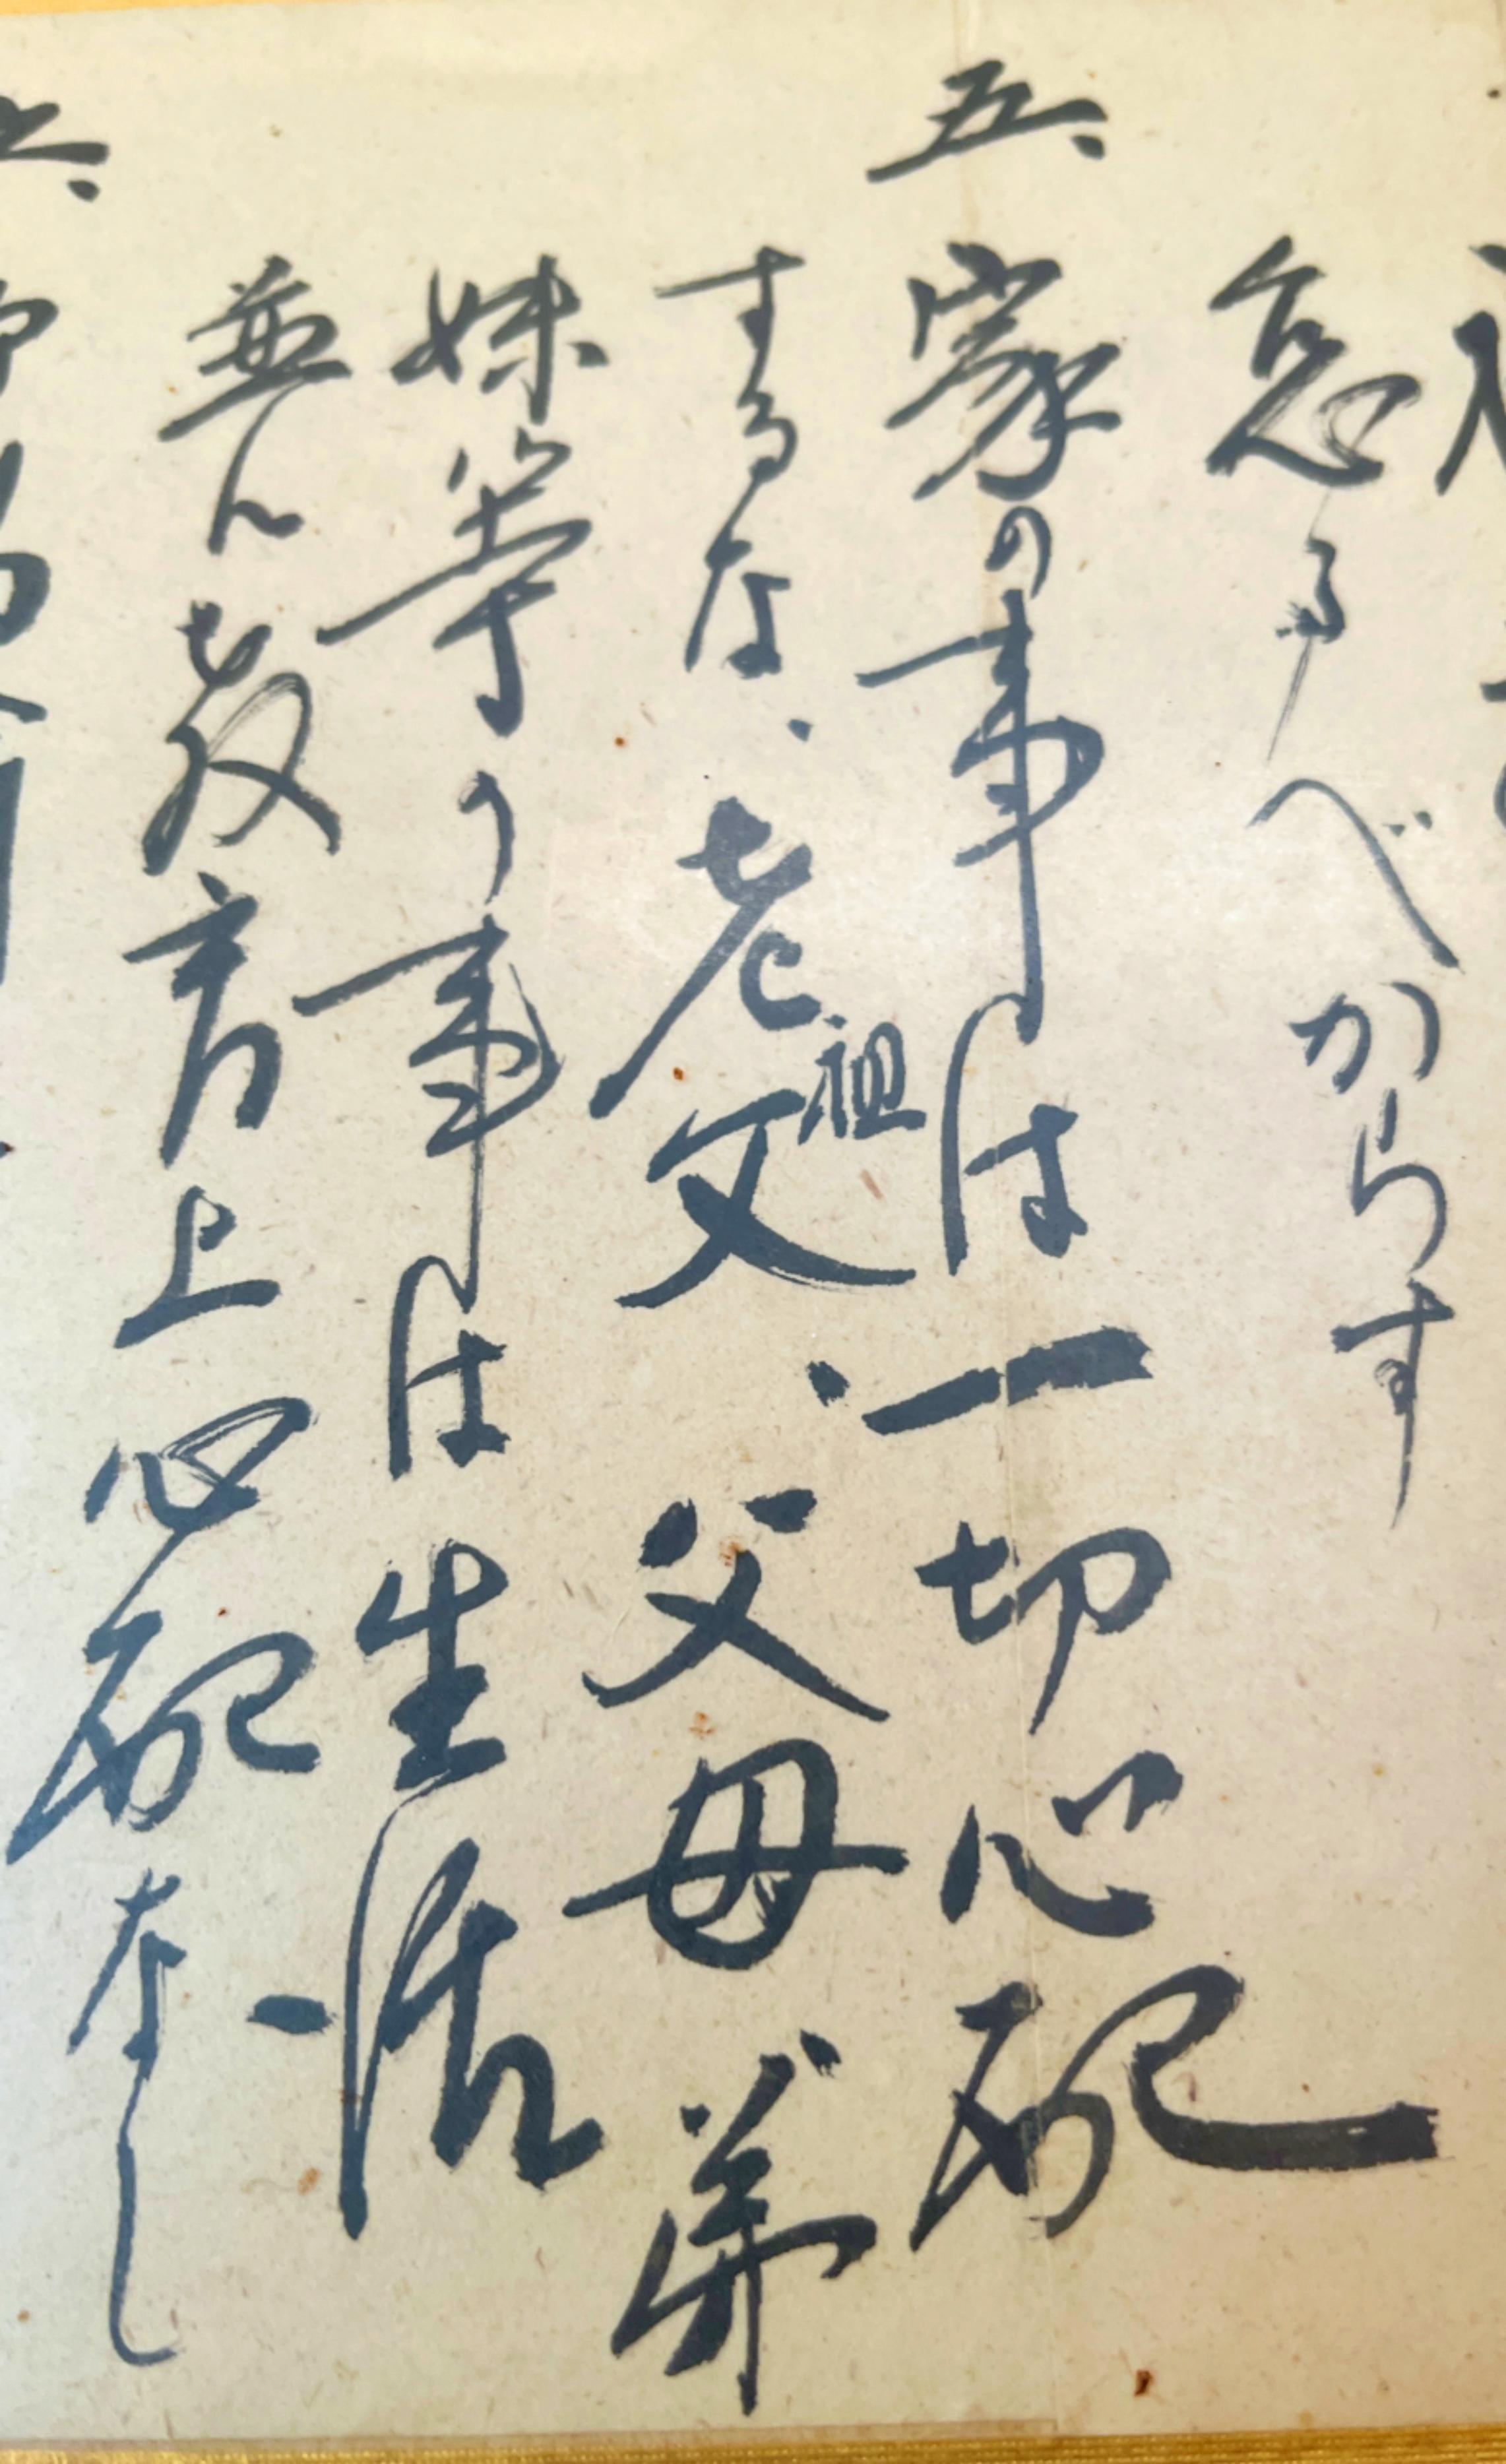 怠るべからす
五、家の事は一切心配
するな、老祖父、父母弟
妹等の事は生活
並に教育上心配なし
六、